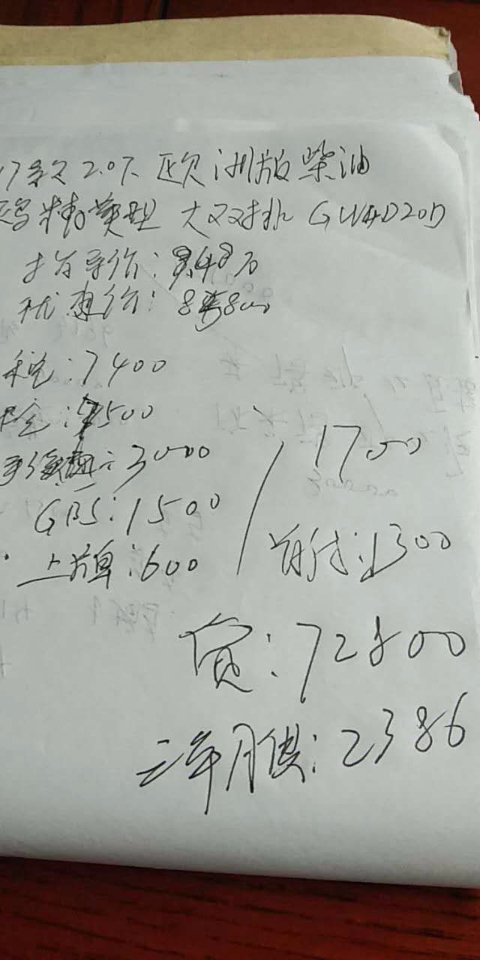 17款2.0T欧洲版柴油
精英型 大双排 GW4D20D
指导价: 9.48万
优惠价: 85800
税:7400
险:4500
手续费:3000
GPS:1500
上牌:600
1700
首付:1300
贷:72800
三年月供:2386